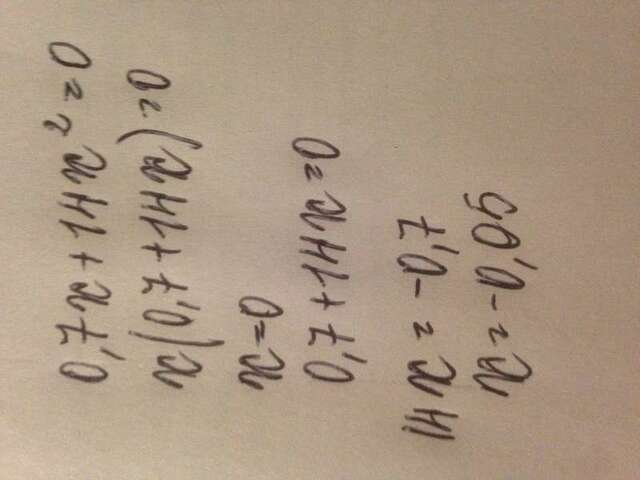 0,7x+14x²=0
x(0,7+14x)=0
x=0
0,7+14x=0
14x=-0,7
x=-0,05